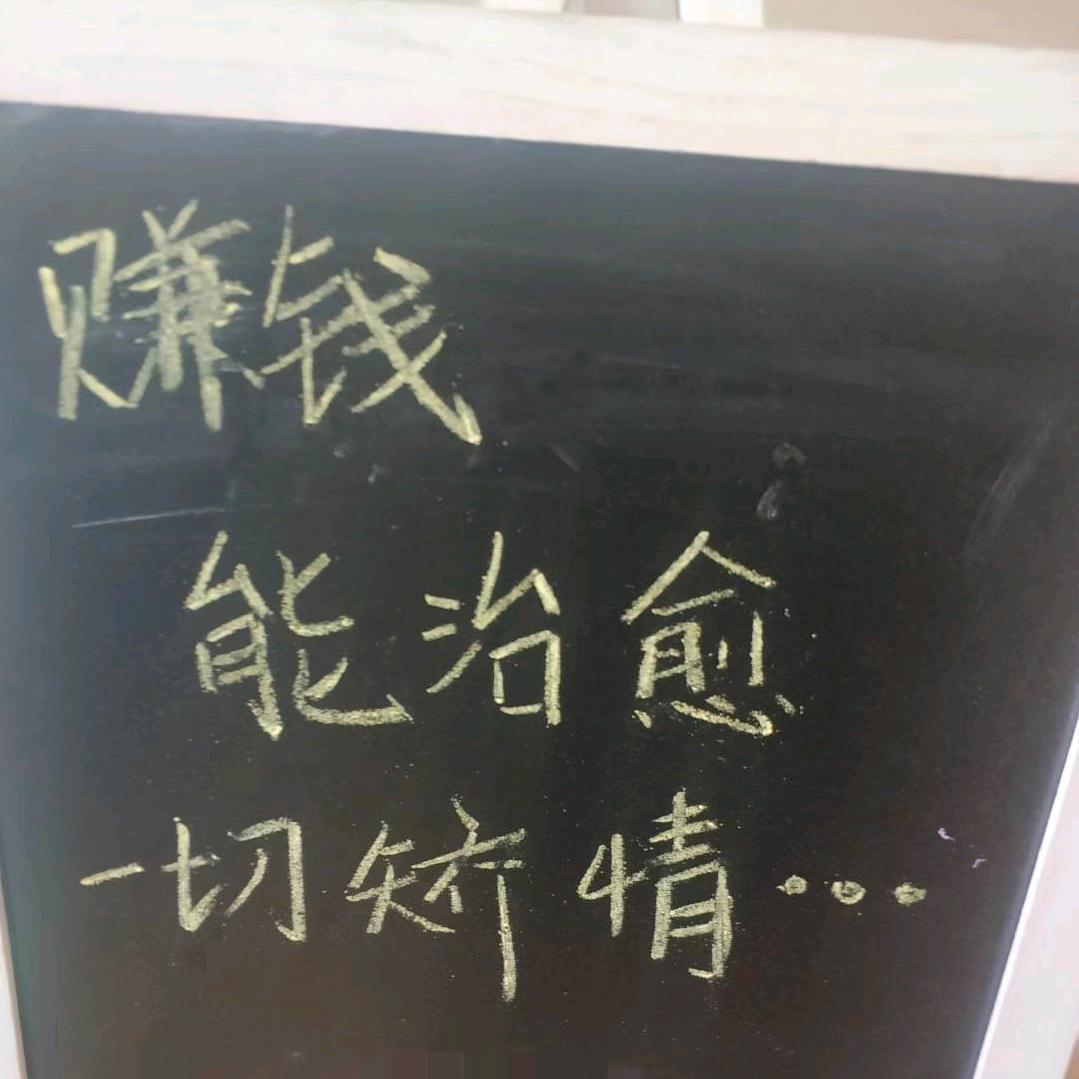 赚钱
能治愈
一切矫情...